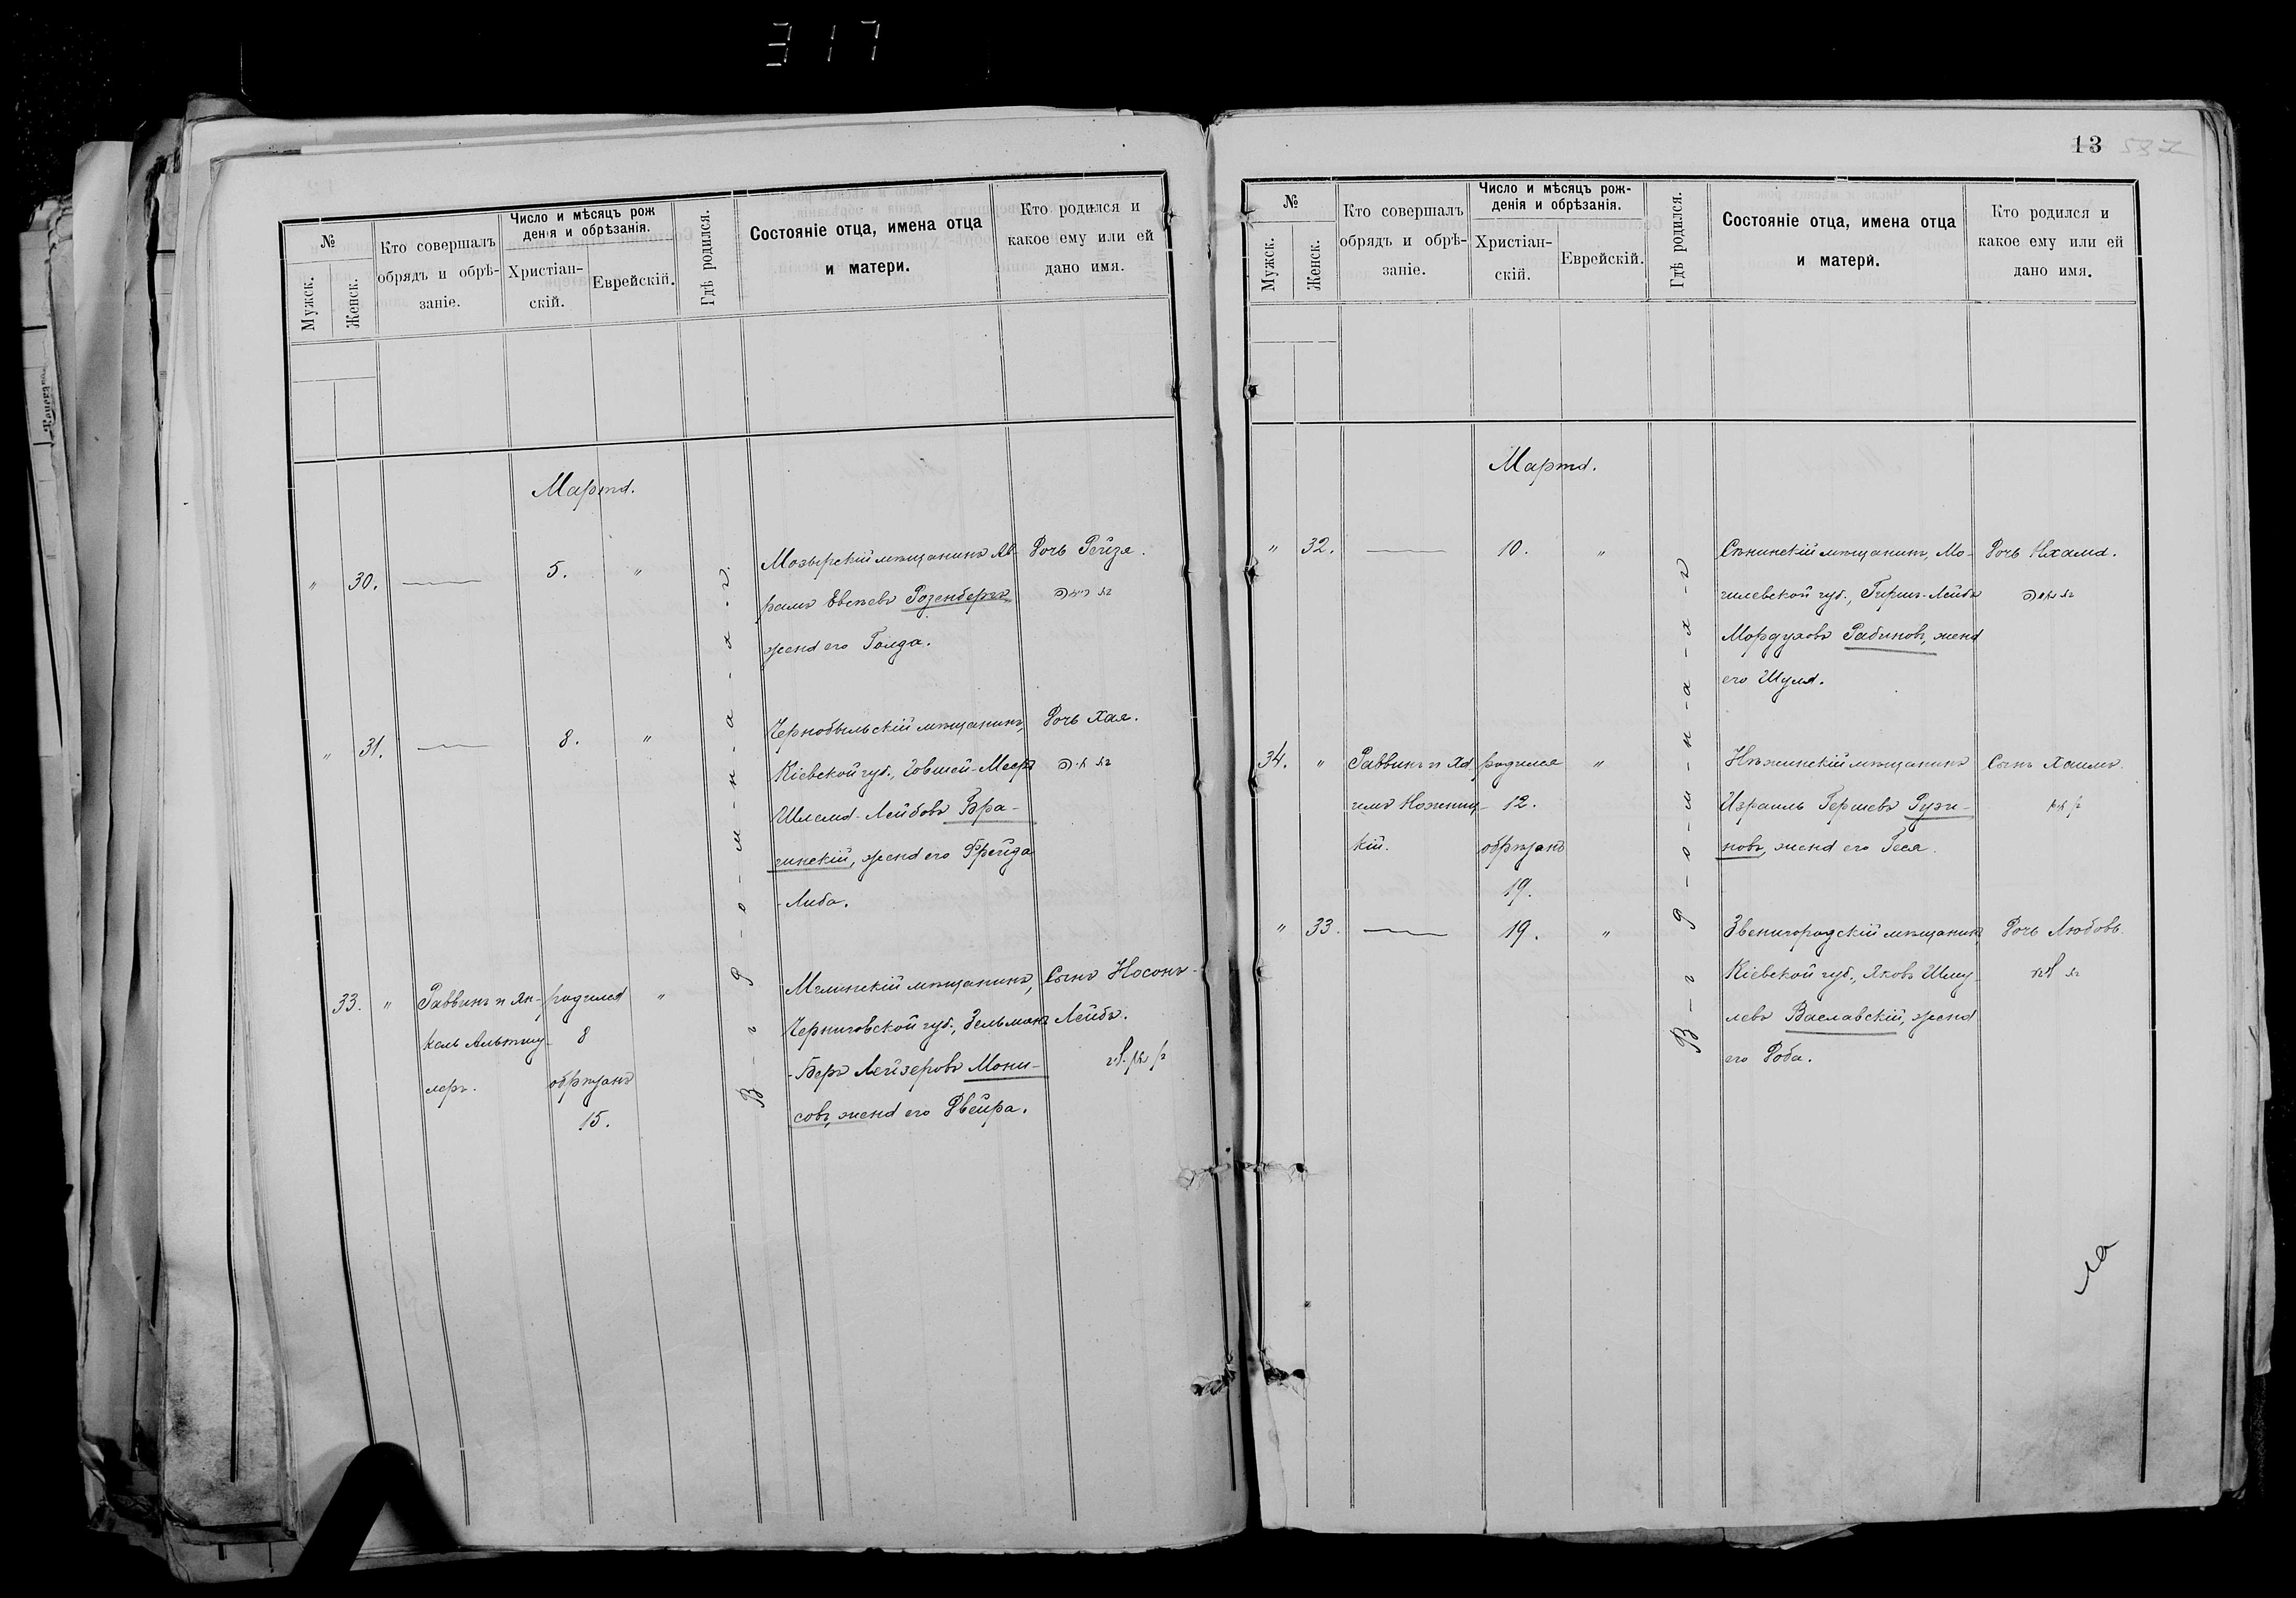 317
№
Мужск.
Женск.
Кто совершалъ
обрядъ и обрѣ-
заніе.
Число и мѣсяцъ рож
денія и обрѣзанія.
Христіан-
скій.
Еврейскій.
Гдѣ родился.
Состояніе отца, имена отца
и матери.
Кто родился и
какое ему или ей
дано имя.
Марта.
В-г Г-о-м-н-а-х-ъ
" 30. — 5. "
Мозырскій мѣщанинъ Аб-
рамъ Евсѣевъ Розенбергъ
жена его Голда.
Дочь Рейзя.
" 31. — 8. "
Чернобыльскій мѣщанинъ,
Кіевской губ., Іовшей-Меер
Шлема-Лейбовъ Бра-
гинскій, жена его Фрейда
-Либа.
Дочь Хая.
33. "
Раввинъ и Ян-
кель Альтшу-
леръ.
родился
8
обрѣзанъ
15.
"
Мглинскій мѣщанинъ,
Черниговской губ., Зельманъ
-Беръ Лейзеровъ Мони-
совъ, жена его Двейра.
Сынъ Носонъ-
Лейбъ.
13 587
№
Мужск.
Женск.
Кто совершалъ
обрядъ и обрѣ-
заніе.
Число и мѣсяцъ рож-
денія и обрѣзанія.
Христіан-
скій.
Еврейскій.
Гдѣ родился.
Состояніе отца, имена отца
и матери.
Кто родился и
какое ему или ей
дано имя.
Марта.
" 32. — 10. "
Сѣнинскій мѣщанинъ, Мо-
гилевской губ., Гиршъ-Лейбъ
Мордуховъ Рабиновъ, жена
его Шула.
Дочь Нхама.
34. "
Раввинъ и Ха
имъ Ножниц-
кій.
родился
12.
обрѣзанъ
19.
"
Нѣжинскій мѣщанинъ
Израиль Гершевъ Рузи-
новъ, жена его Геся.
Сынъ Хаимъ.
" 33. — 19. "
Звенигородскій мѣщанинъ,
Кіевской губ., Яковъ Шму-
левъ Ваславскій, жена
его Доба.
Дочь Любовь.